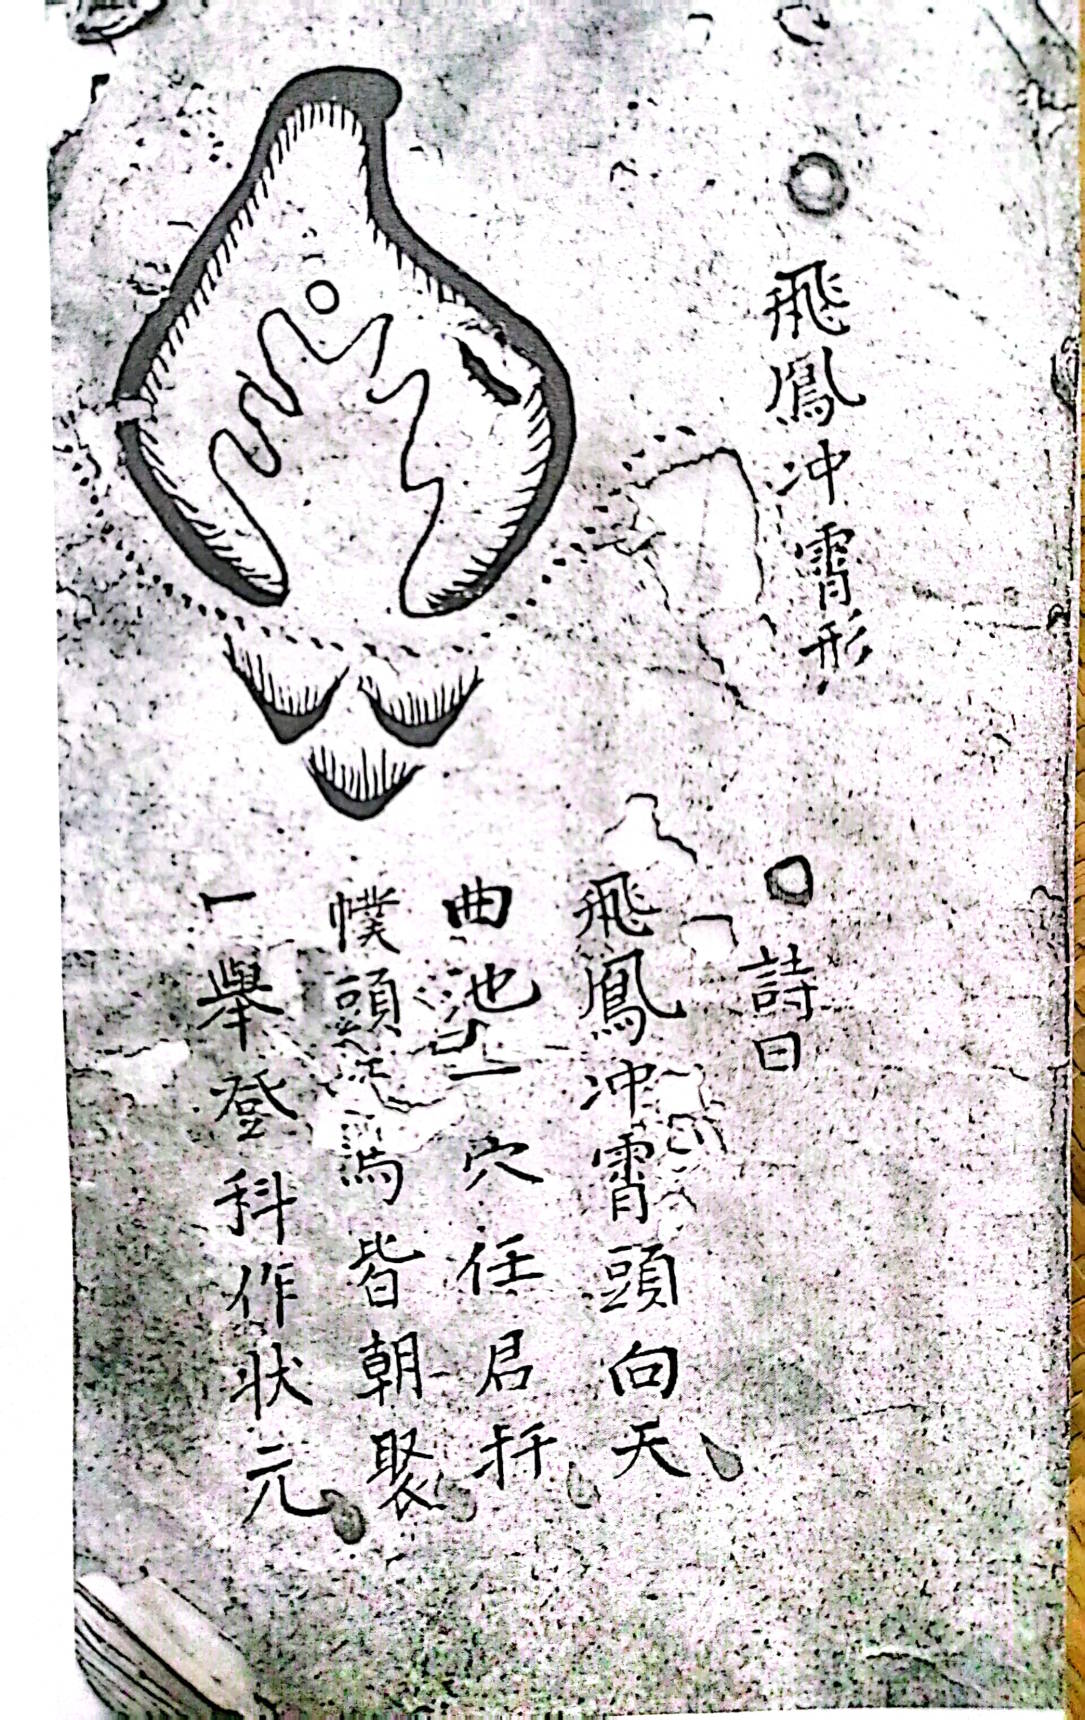 ○飛鳳冲霄形
○詩曰
飛鳳冲霄頭向天
曲池上一穴任君扦
幞頭 潟皆朝聚
一舉登科作状元